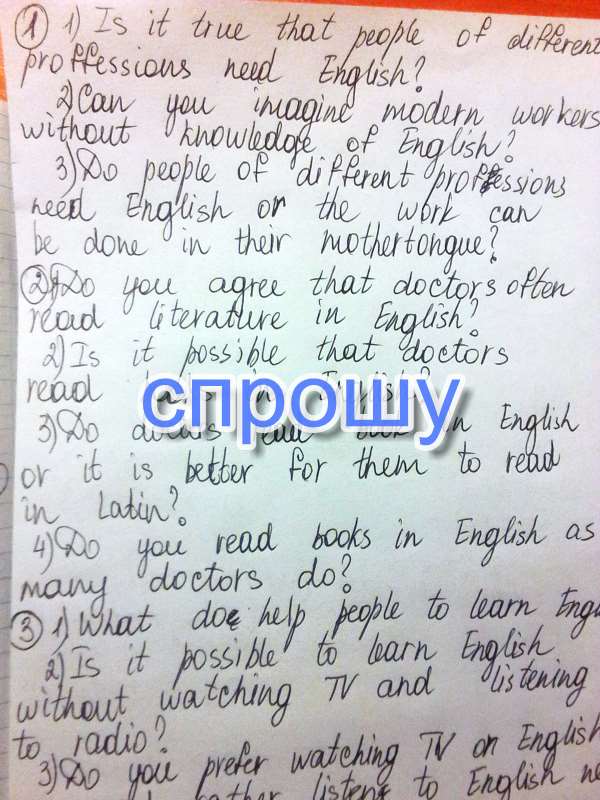 ① 1) Is it true that people of different
proffessions need English?
2) Can you imagine modern workers
without knowledge of English?
3) Do people of different proffessions
need English or the work can
be done in their mothertongue?
② 1) Do you agree that doctors often
read literature in English?
2) Is it possible that doctors
read in English?
спрошу
3) Do read in English
or it is better for them to read
in Latin?
4) Do you read books in English as
many doctors do?
③ 1) What does help people to learn Engl
2) Is it possible to learn English
without watching TV and listening
to radio?
3) Do you prefer watching TV on English
rather listen to English ne